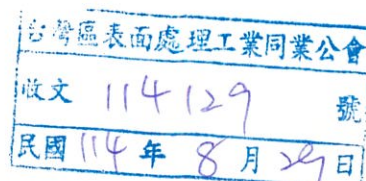 台灣區表面處理工業同業公會
收文 114129 號
民國 114 年 8 月 29 日